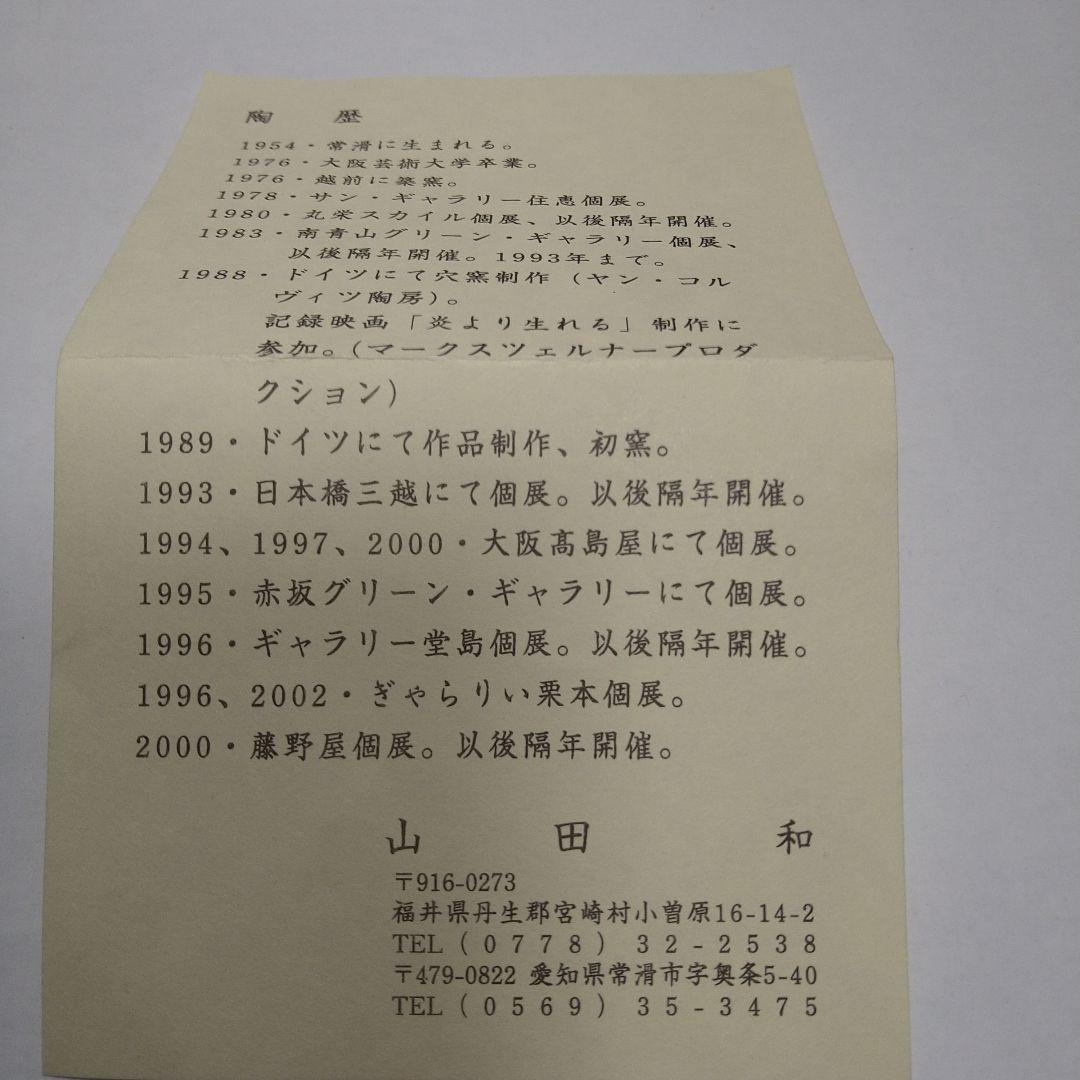 陶　歴
1954・常滑に生まれる。
1976・大阪芸術大学卒業。
1976・越前に築窯。
1978・サン・ギャラリー住恵個展。
1980・丸栄スカイル個展、以後隔年開催。
1983・南青山グリーン・ギャラリー個展、
以後隔年開催。1993年まで。
1988・ドイツにて穴窯制作（ヤン・コル
ヴィツ陶房）。
記録映画「炎より生れる」制作に
参加。（マークスツェルナープロダ
クション）
1989・ドイツにて作品制作、初窯。
1993・日本橋三越にて個展。以後隔年開催。
1994、1997、2000・大阪髙島屋にて個展。
1995・赤坂グリーン・ギャラリーにて個展。
1996・ギャラリー堂島個展。以後隔年開催。
1996、2002・ぎゃらりい栗本個展。
2000・藤野屋個展。以後隔年開催。
山　田　和
〒916-0273
福井県丹生郡宮崎村小曽原16-14-2
TEL（0778）32-2538
〒479-0822 愛知県常滑市字奥条5-40
TEL（0569）35-3475